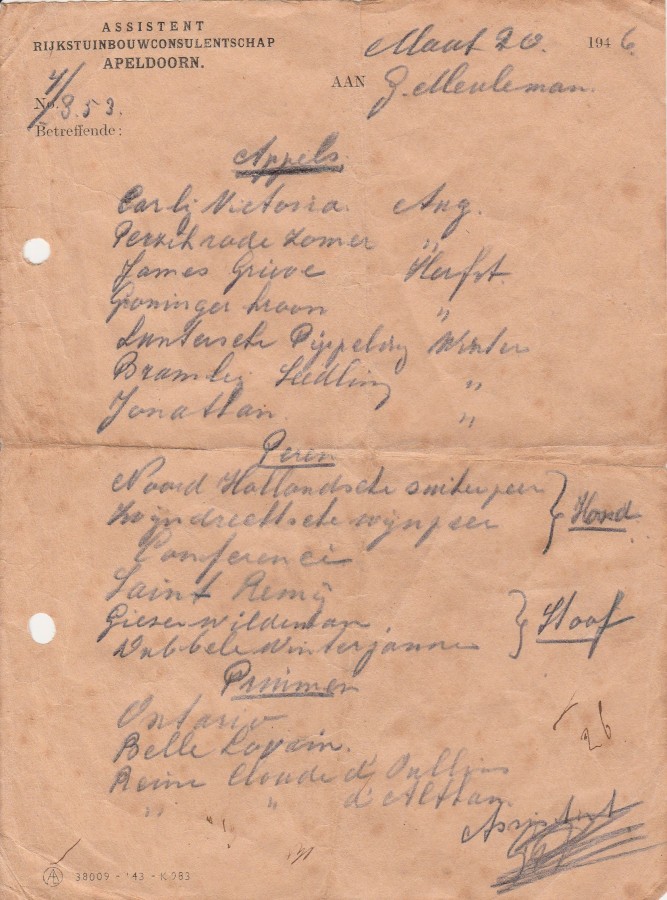 ASSISTENT
RIJKSTUINBOUWCONSULENTSCHAP
APELDOORN.
Maat 20. 1946.
AAN J. Meuleman.
No. 4/853.
Betreffende:
Appels
Early Victoria. Aug.
Perzikrode Zomer "
James Grieve Herfst.
Groninger kroon "
Luntersche Pippeling Winter
Bramley Seedling "
Jonathan. "
Peren
Noord Hollandsche suikerpeer
Zwyndrechtsche wynpeer } Hand
Conference
Saint Remy
Gieser wildeman } Stoof
Dubbele Winterjanne
Pruimen
Ontario
Belle Louvain.
Reine Claude d'Oullins
" " d'Althan
26
Assistent
38009 - '43 - K 983